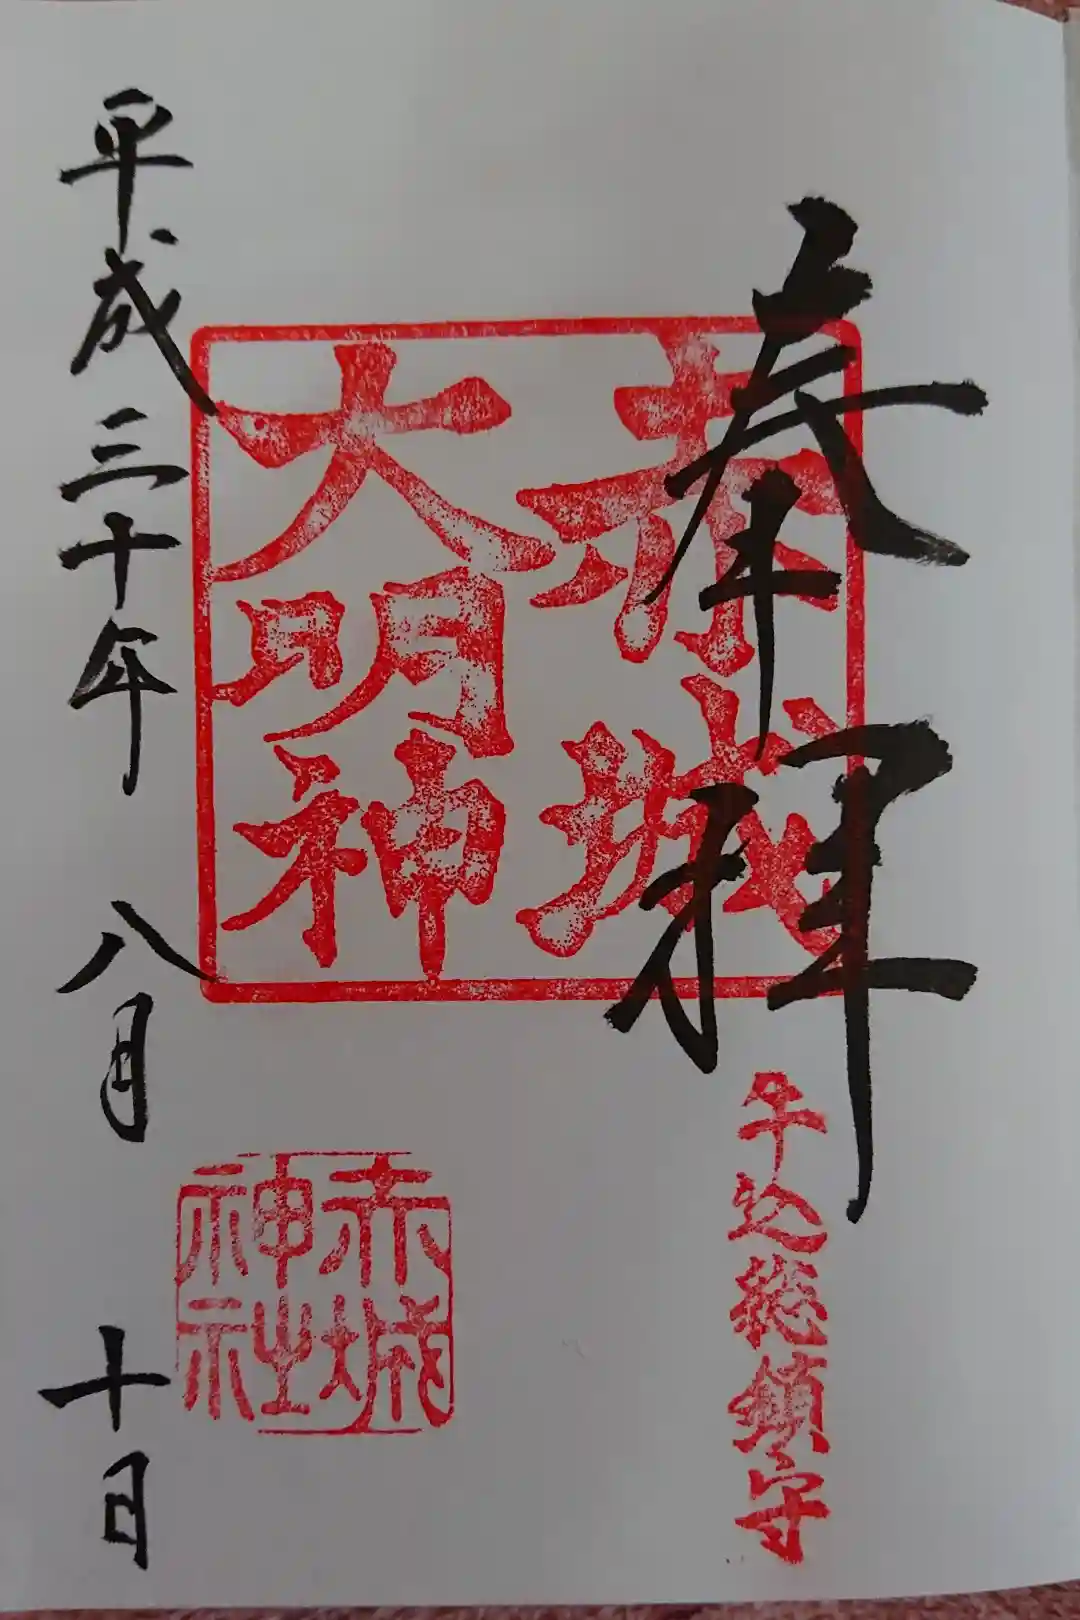 奉拝
牛込総鎮守
赤城
大明神
赤城
神社
平成三十年 八月 十日